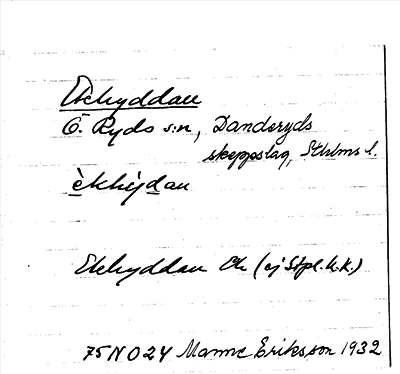 Ekhyddan
Ö. Ryds sn, Danderyds
skeppslag, Sthlms l.
èkhýdan
Ekhyddan Ek (ej Stpl. k.k.)
75 N O 24 Manne Eriksson 1932